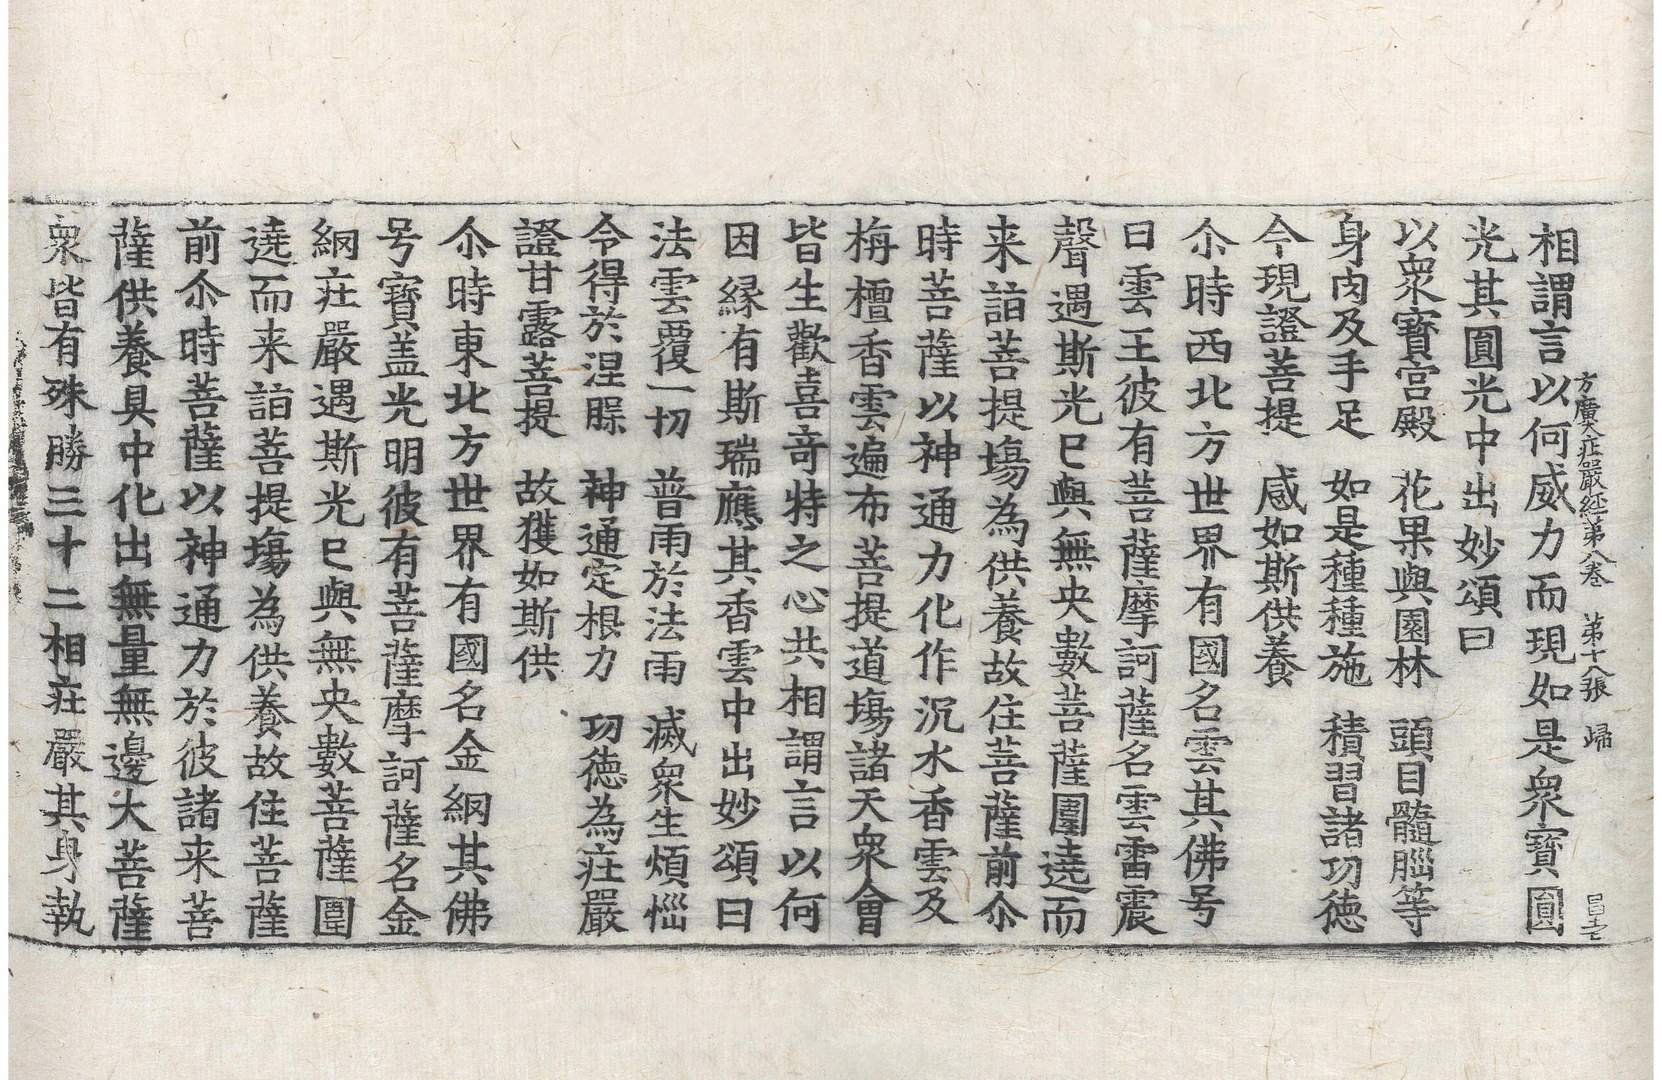 方廣大庄嚴経第八巻　第十八張　㷌
相謂言以何威力而現如是衆寶圓
光其圓光中出妙頌曰
以衆寶宮殿　花果與園林　頭目髓腦等
身肉及手足　如是種種施　積習諸功徳
今現證菩提　感如斯供養
尒時西北方世界有國名雲其佛号
曰雲王彼有菩薩摩訶薩名雲雷震
聲遇斯光已與無央數菩薩圍遶而
来詣菩提場為供養故住菩薩前尒
時菩薩以神通力化作沉水香雲及
栴檀香雲遍布菩提道場諸天衆會
皆生歡喜竒特之心共相謂言以何
因縁有斯瑞應其香雲中出妙頌曰
法雲覆一切　普雨於法雨　滅衆生煩惱
令得於涅槃　神通定根力　功徳為庄嚴
證甘露菩提　故獲如斯供
尒時東北方世界有國名金網其佛
号寶盖光明彼有菩薩摩訶薩名金
網庄嚴遇斯光已與無央數菩薩圍
遶而来詣菩提場為供養故住菩薩
前尒時菩薩以神通力於彼諸来菩
薩供養具中化出無量無邊大菩薩
衆皆有殊勝三十二相庄嚴其身執